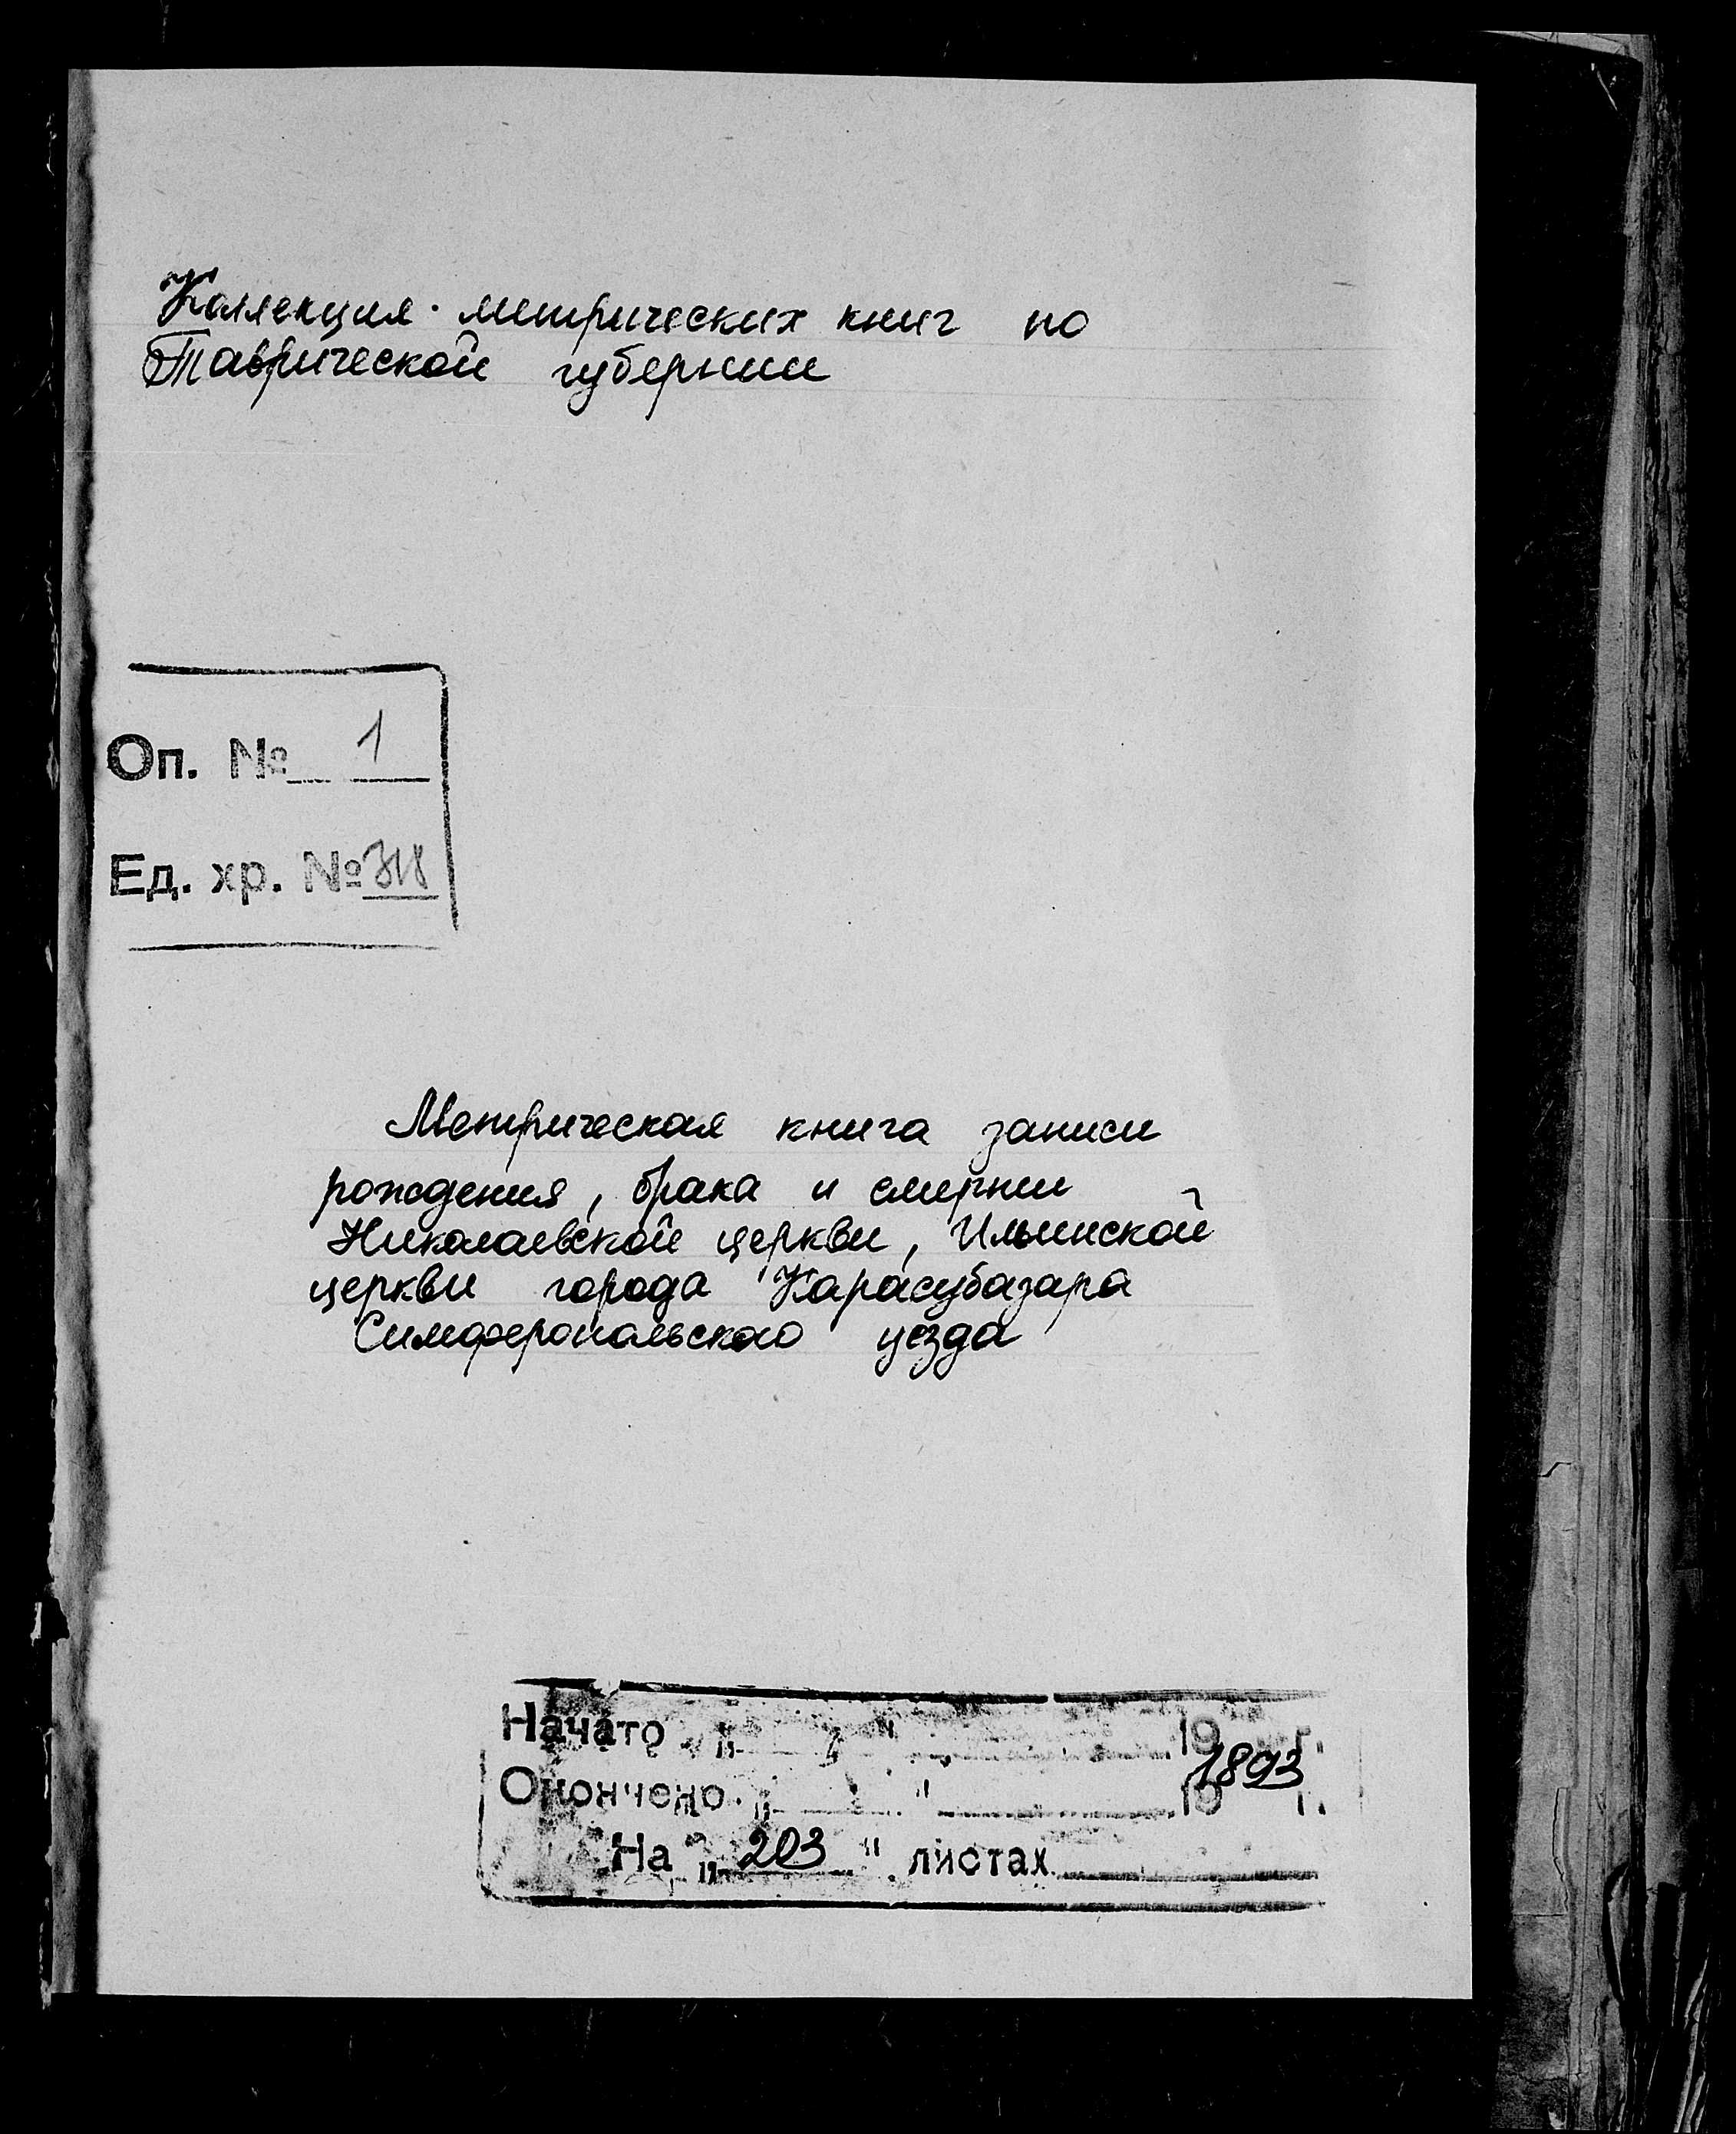 Коллекция метрических книг по
Таврической губернии
Оп. № 1
Ед. хр. № 318
Метрическая книга записи
рождения, брака и смерти
Николаевской церкви, Ильинской
церкви города Карасубазара
Симферопольского уезда
Начато " " 19 г.
1893
Окончено " " 19 г.
На " 203 " листах